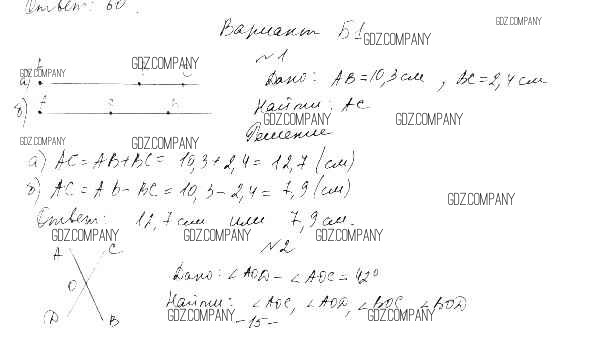 Ответ: 60.
Вариант Б1
№1
а)
б)
Дано: AB=10,3 см, BC=2,4 см
Найти: AC
Решение
а) AC=AB+BC=10,3+2,4=12,7 (см)
б) AC=AB-BC=10,3-2,4=7,9 (см)
Ответ: 12,7 см или 7,9 см.
№2
A C
O
D B
Дано: ∠AOD-∠AOC=42°
Найти: ∠AOC, ∠AOD, ∠BOC, ∠BOD
-15-
GDZ.COMPANY
GDZ.COMPANY
GDZ.COMPANY
GDZ.COMPANY
GDZ.COMPANY
GDZ.COMPANY
GDZ.COMPANY
GDZ.COMPANY
GDZ.COMPANY
GDZ.COMPANY
GDZ.COMPANY
GDZ.COMPANY
GDZ.COMPANY
GDZ.COMPANY